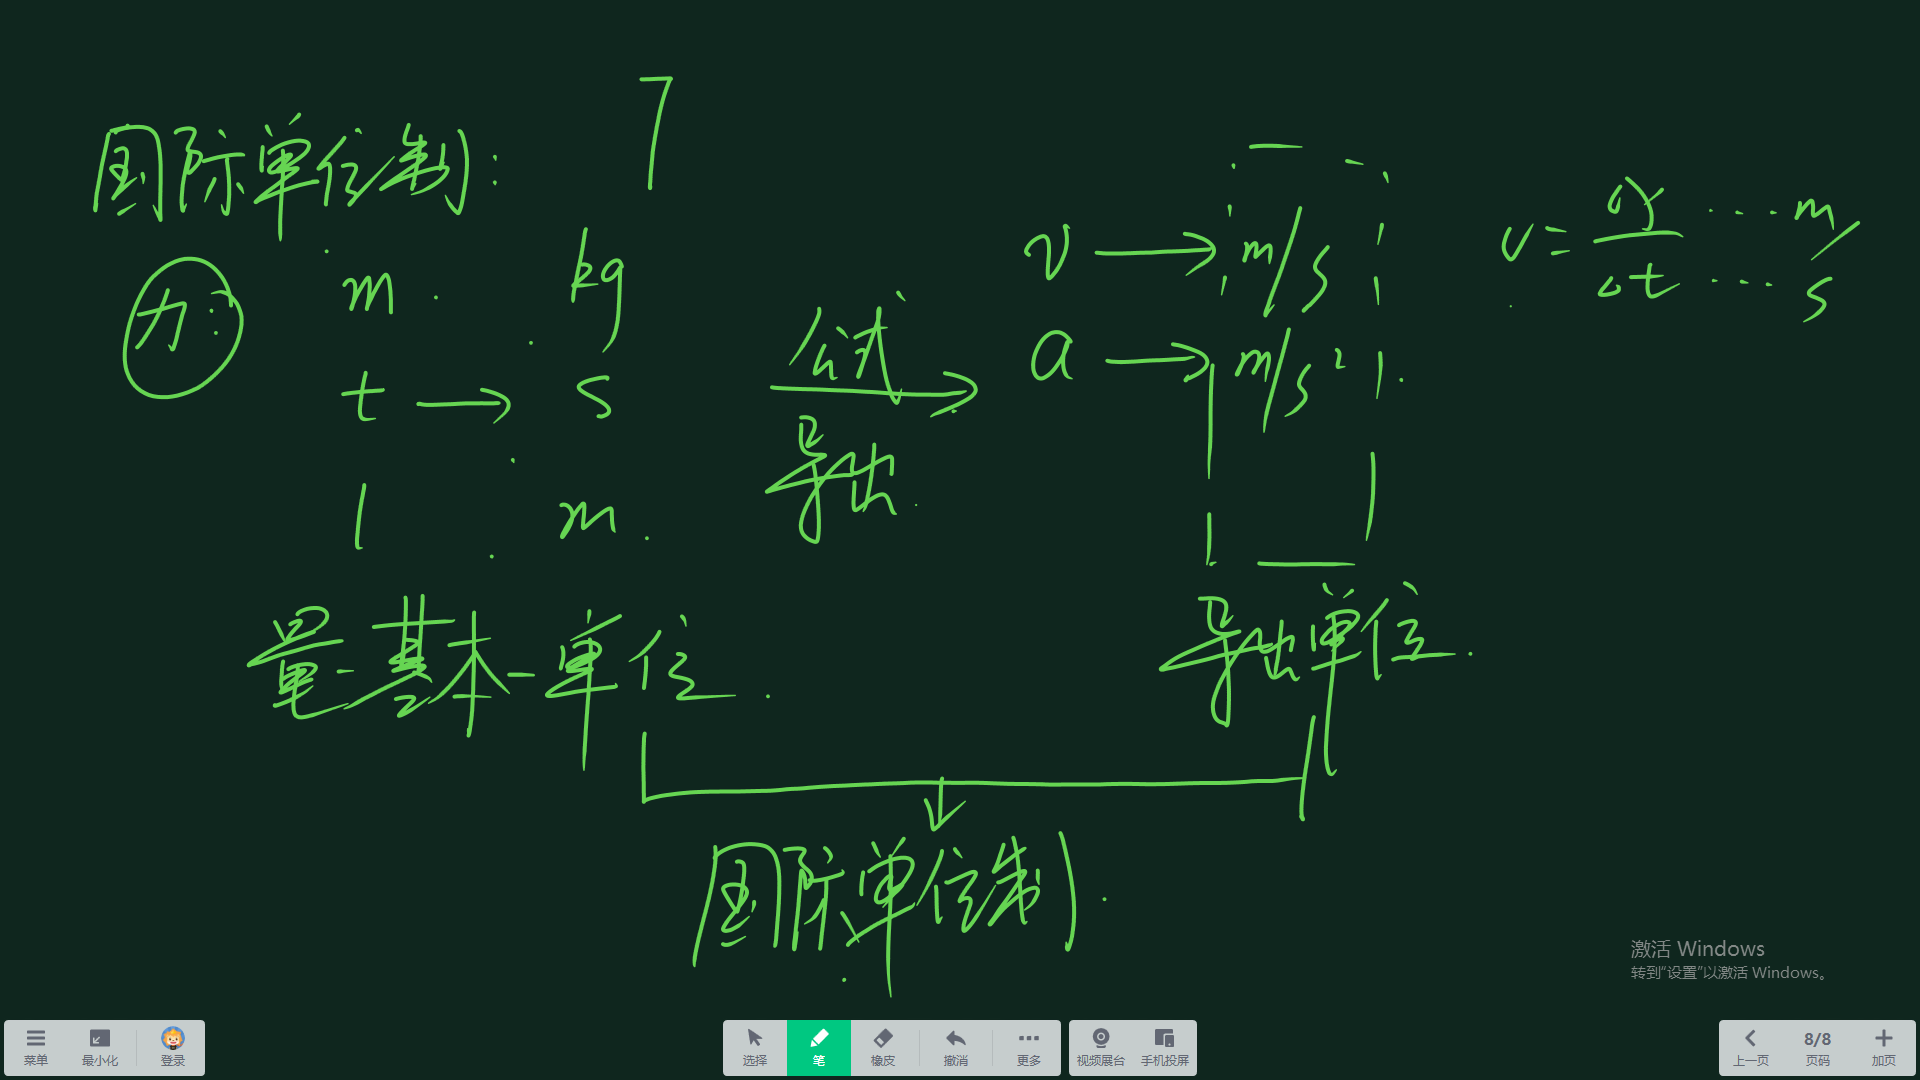 国际单位制: 7
力:
m. kg
t → s
l m.
公式
导出
v → m/s
a → m/s²
v = Δx ... m
Δt ... s
量-基本-单位.
导出单位.
国际单位制.
激活 Windows
转到“设置”以激活 Windows。
菜单 最小化 登录 选择 笔 橡皮 撤消 更多 视频展台 手机投屏 上一页 8/8 页码 加页